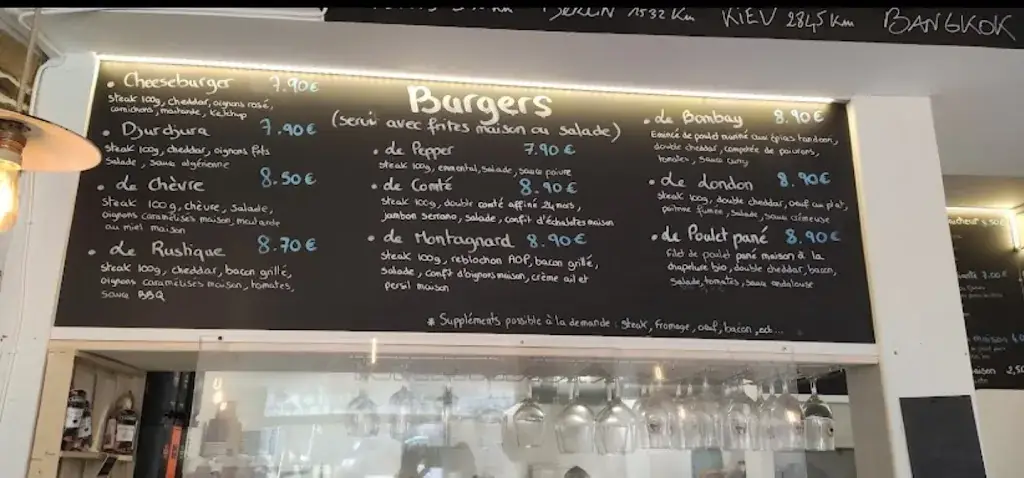 BERLIN 1532 Km KIEV 2845 Km BANGKOK
• Cheeseburger 7.90€
steak 100g, cheddar, oignons rosé,
cornichons, moutarde, Ketchup
• Djurdjura 7.90€
steak 100g, cheddar, oignons frits
salade, sauce algérienne
• Le Chèvre 8.50€
steak 100g, chèvre, salade,
oignons caramélisés maison, moutarde
au miel maison
• Le Rustique 8.70€
steak 100g, cheddar, bacon grillé,
oignons caramélises maison, tomates,
sauce BBQ
Burgers
(servir avec frites maison ou salade)
• Le Pepper 7.90€
steak 100g, emmental, salade, sauce poivre
• Le Comté 8.90€
steak 100g, double comté affiné 24 mois,
jambon Serrano, salade, confit d'échalotes maison
• Le Montagnard 8.90€
steak 100g, reblochon AOP, bacon grillé,
salade, confit d'oignons maison, crème ail et
persil maison
• Le Bombay 8.90€
Emincé de poulet mariné aux épices tandoori,
double cheddar, compotée de poivrons,
tomates, sauce curry
• Le London 8.90€
steak 100g, double cheddar, oeuf au plat,
poitrine fumée, salade, sauce crémeuse
• Le Poulet pané 8.90€
Filet de poulet pané maison à la
chapelure bio, double cheddar, bacon,
salade, tomates, sauce andalouse
* Suppléments possible à la demande : steak, fromage, oeuf, bacon, ect...
7.00€
maison
2,50